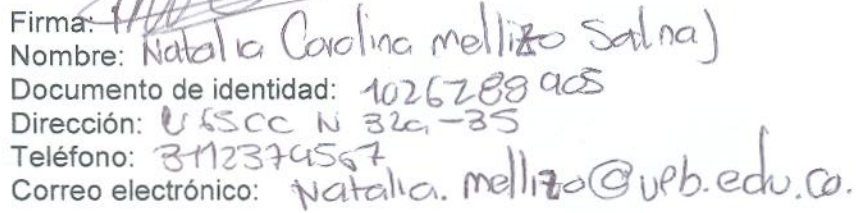 Firma:
Nombre: Natalia Carolina mellizo Salnas
Documento de identidad: 1026288905
Dirección: N 32a-35
Teléfono: 3112374567
Correo electrónico: Natalia.mellizo@upb.edu.co.